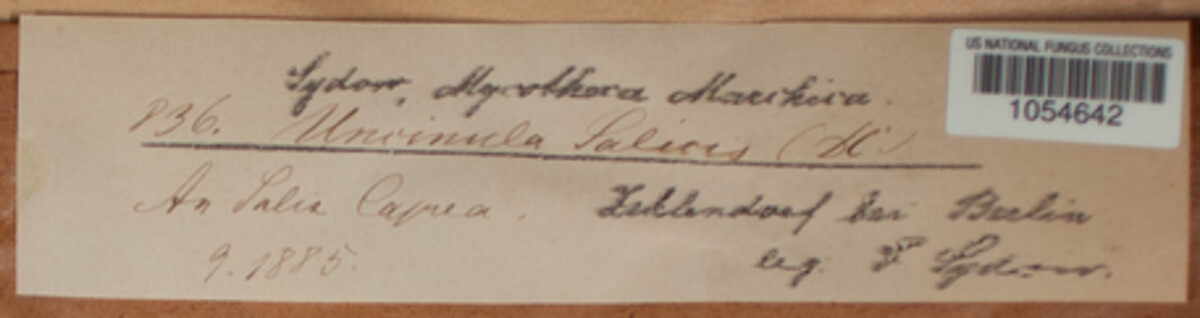 US NATIONAL FUNGUS COLLECTIONS
1054642
Sydow, Mycotheca Marchica.
836. Uncinula Salicis (DC)
An Salix Caprea.
Zehlendorf bei Berlin
9.1885.
leg. P Sydow.